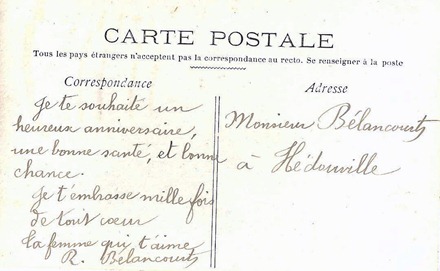 CARTE POSTALE
Tous les pays étrangers n'acceptent pas la correspondance au recto. Se renseigner à la poste
Correspondance
Je te souhaite un
heureux anniversaire,
une bonne santé, et bonne
chance.
Je t'embrasse mille fois
de tout cœur
ta femme qui t'aime
R. Bélancourts
Adresse
Monsieur Bélancourts
à Hédouville